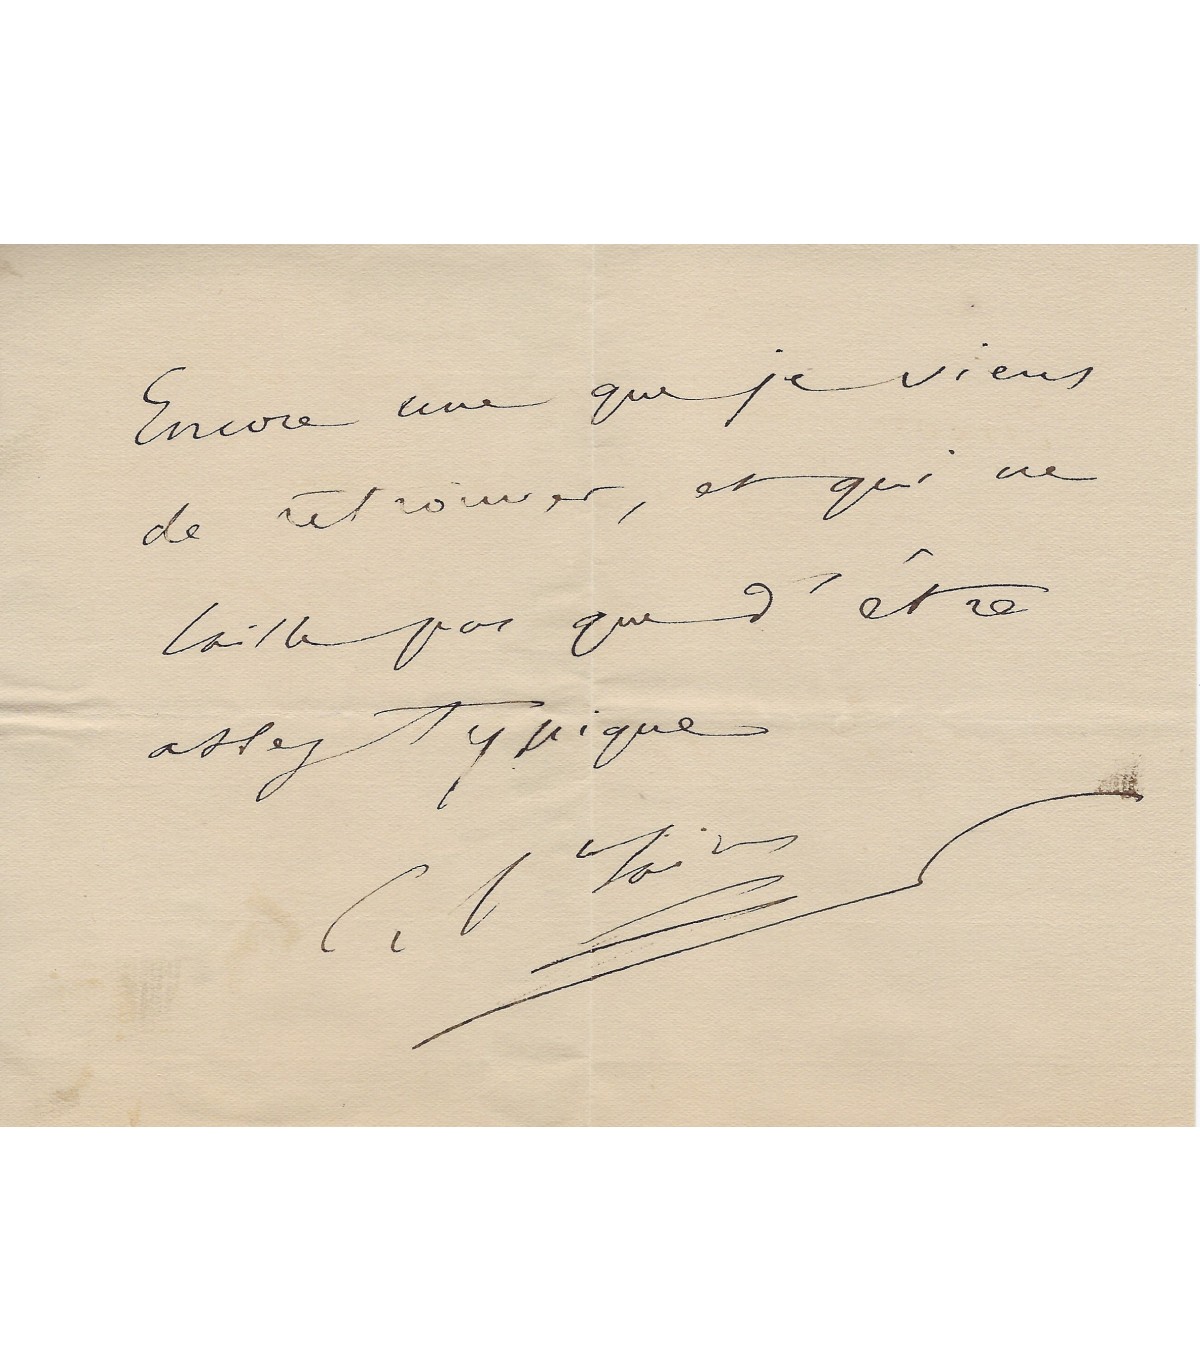 Encore une que je viens
de retrouver, et qui ne
laisse pas que d'être
assez typique
C. S